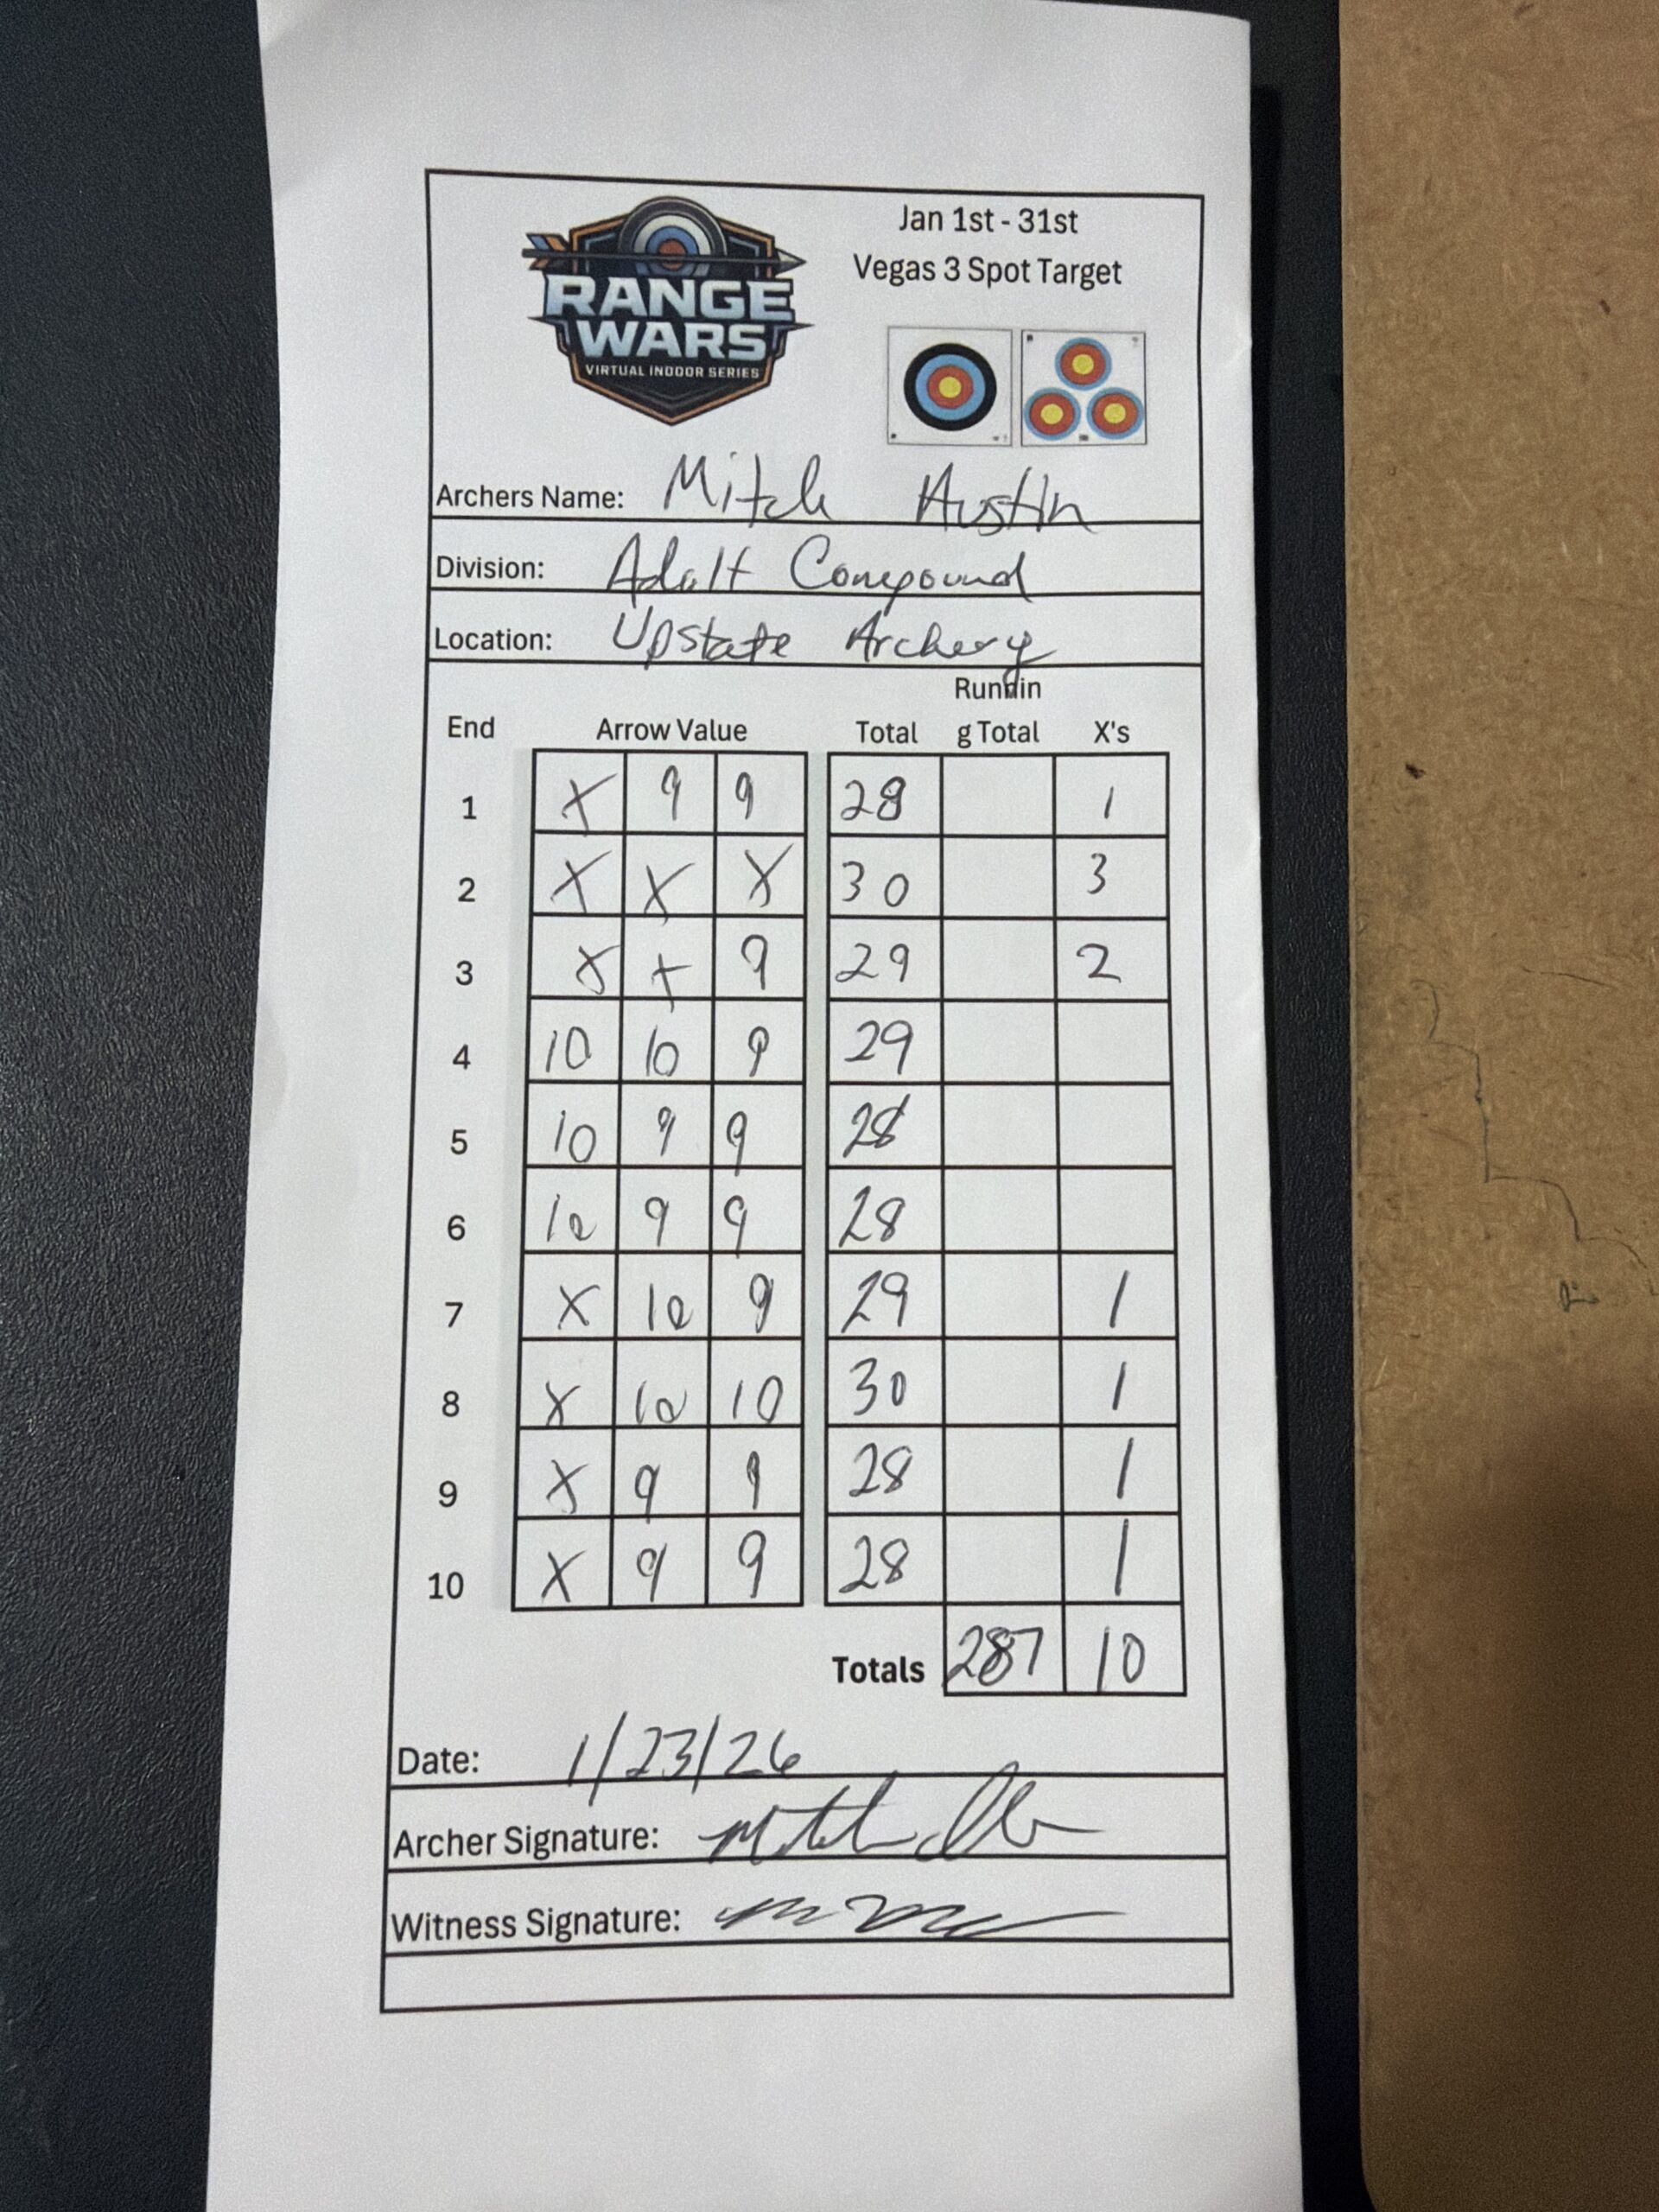 RANGE
WARS
VIRTUAL INDOOR SERIES
Jan 1st - 31st
Vegas 3 Spot Target
Archers Name: Mitch Austin
Division: Adult Compound
Location: Upstate Archery
Runnin
End Arrow Value Total g Total X's
1 X 9 9 28 1
2 X X X 30 3
3 X X 9 29 2
4 10 10 9 29
5 10 9 9 28
6 10 9 9 28
7 X 10 9 29 1
8 X 10 10 30 1
9 X 9 9 28 1
10 X 9 9 28 1
Totals 287 10
Date: 1/23/26
Archer Signature:
Witness Signature: